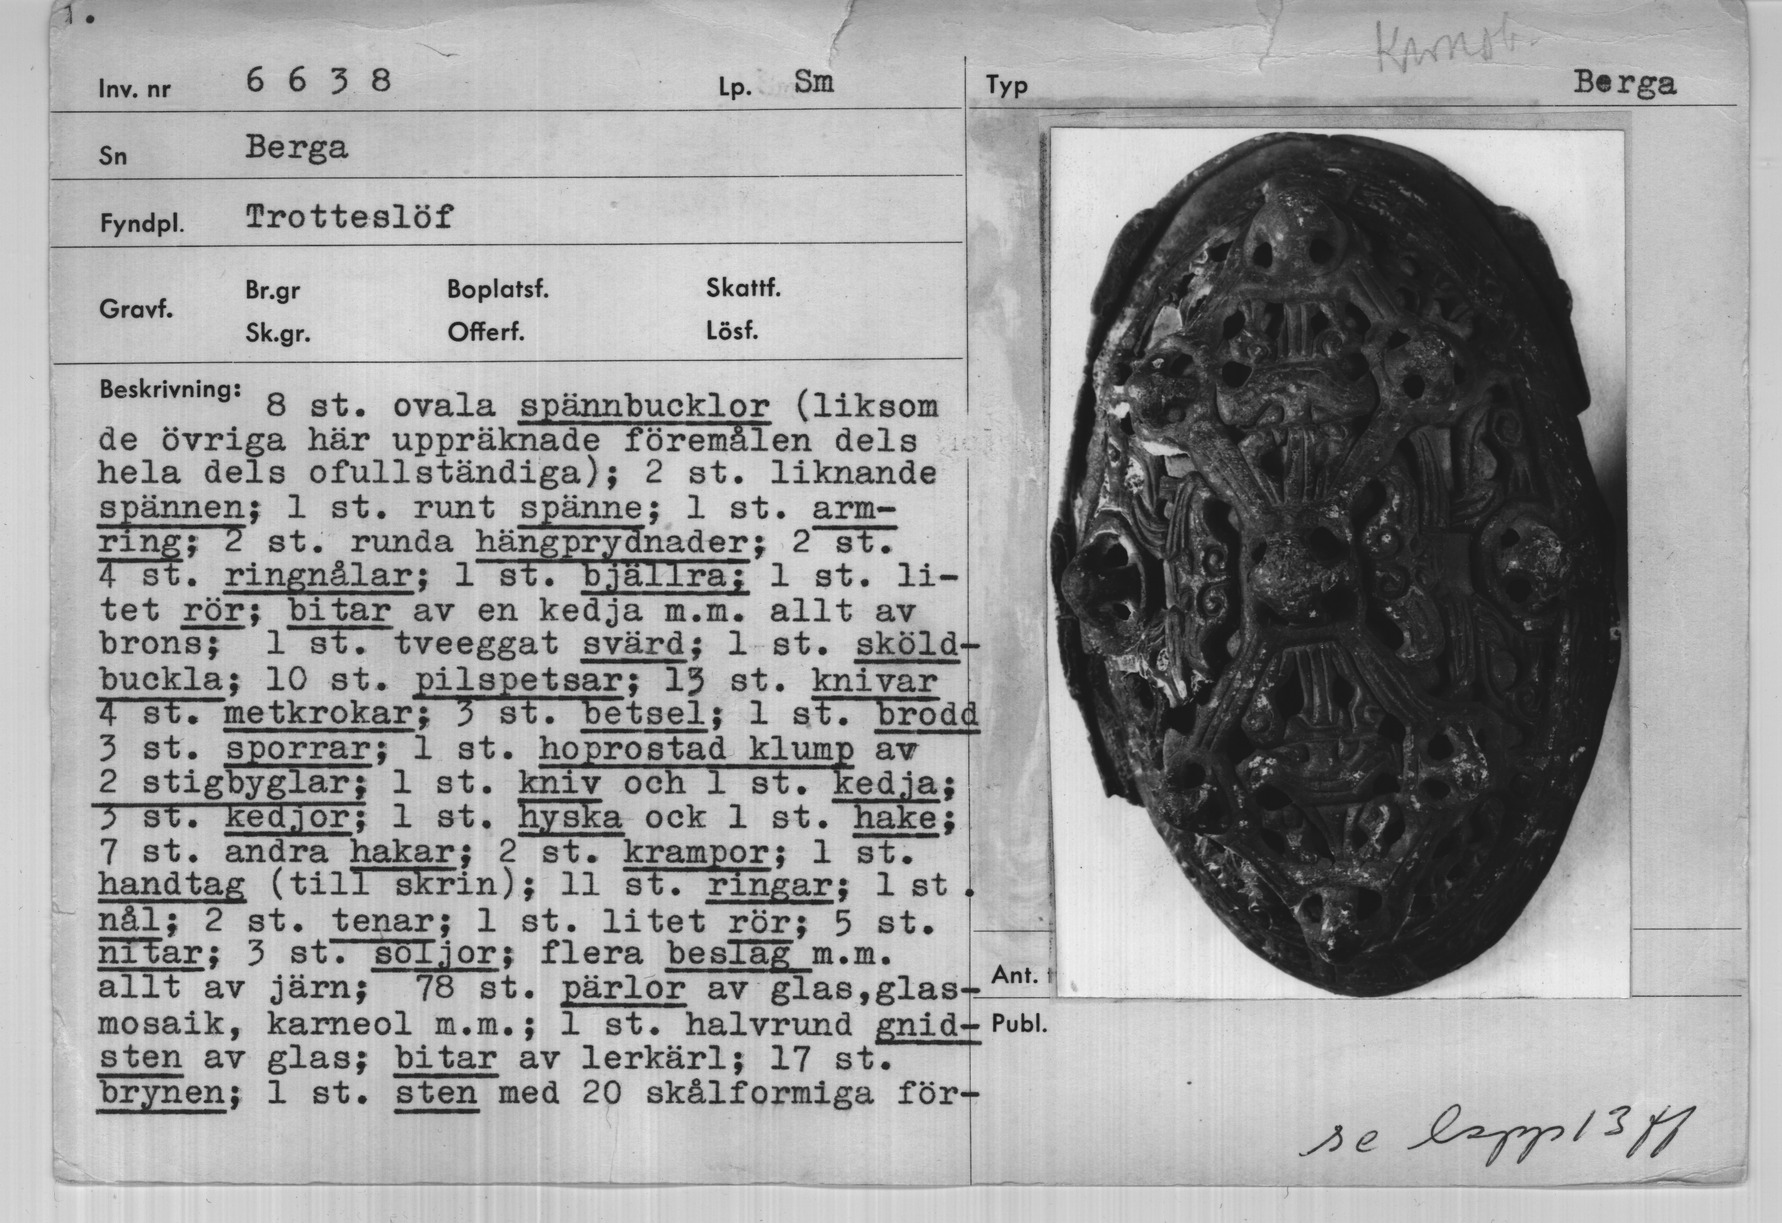 1.
Inv. nr 6 6 3 8 Lp. Sm Typ Berga
Sn Berga
Fyndpl. Trotteslöf
Gravf. Br.gr Boplatsf. Skattf.
Sk.gr. Offerf. Lösf.
Beskrivning: 8 st. ovala spännbucklor (liksom
de övriga här uppräknade föremålen dels
hela dels ofullständiga); 2 st. liknande
spännen; 1 st. runt spänne; 1 st. arm-
ring; 2 st. runda hängprydnader; 2 st.
4 st. ringnålar; 1 st. bjällra; 1 st. li-
tet rör; bitar av en kedja m.m. allt av
brons; 1 st. tveeggat svärd; 1 st. sköld-
buckla; 10 st. pilspetsar; 13 st. knivar
4 st. metkrokar; 3 st. betsel; 1 st. brodd
3 st. sporrar; 1 st. hoprostad klump av
2 stigbyglar; 1 st. kniv och 1 st. kedja;
3 st. kedjor; 1 st. hyska ock 1 st. hake;
7 st. andra hakar; 2 st. krampor; 1 st.
handtag (till skrin); 11 st. ringar; 1 st.
nål; 2 st. tenar; 1 st. litet rör; 5 st.
nitar; 3 st. söljor; flera beslag m.m.
allt av järn; 78 st. pärlor av glas,glas-
mosaik, karneol m.m.; 1 st. halvrund gnid-
sten av glas; bitar av lerkärl; 17 st.
brynen; 1 st. sten med 20 skålformiga för-
Ant.
Publ.
se lapp 13 ff